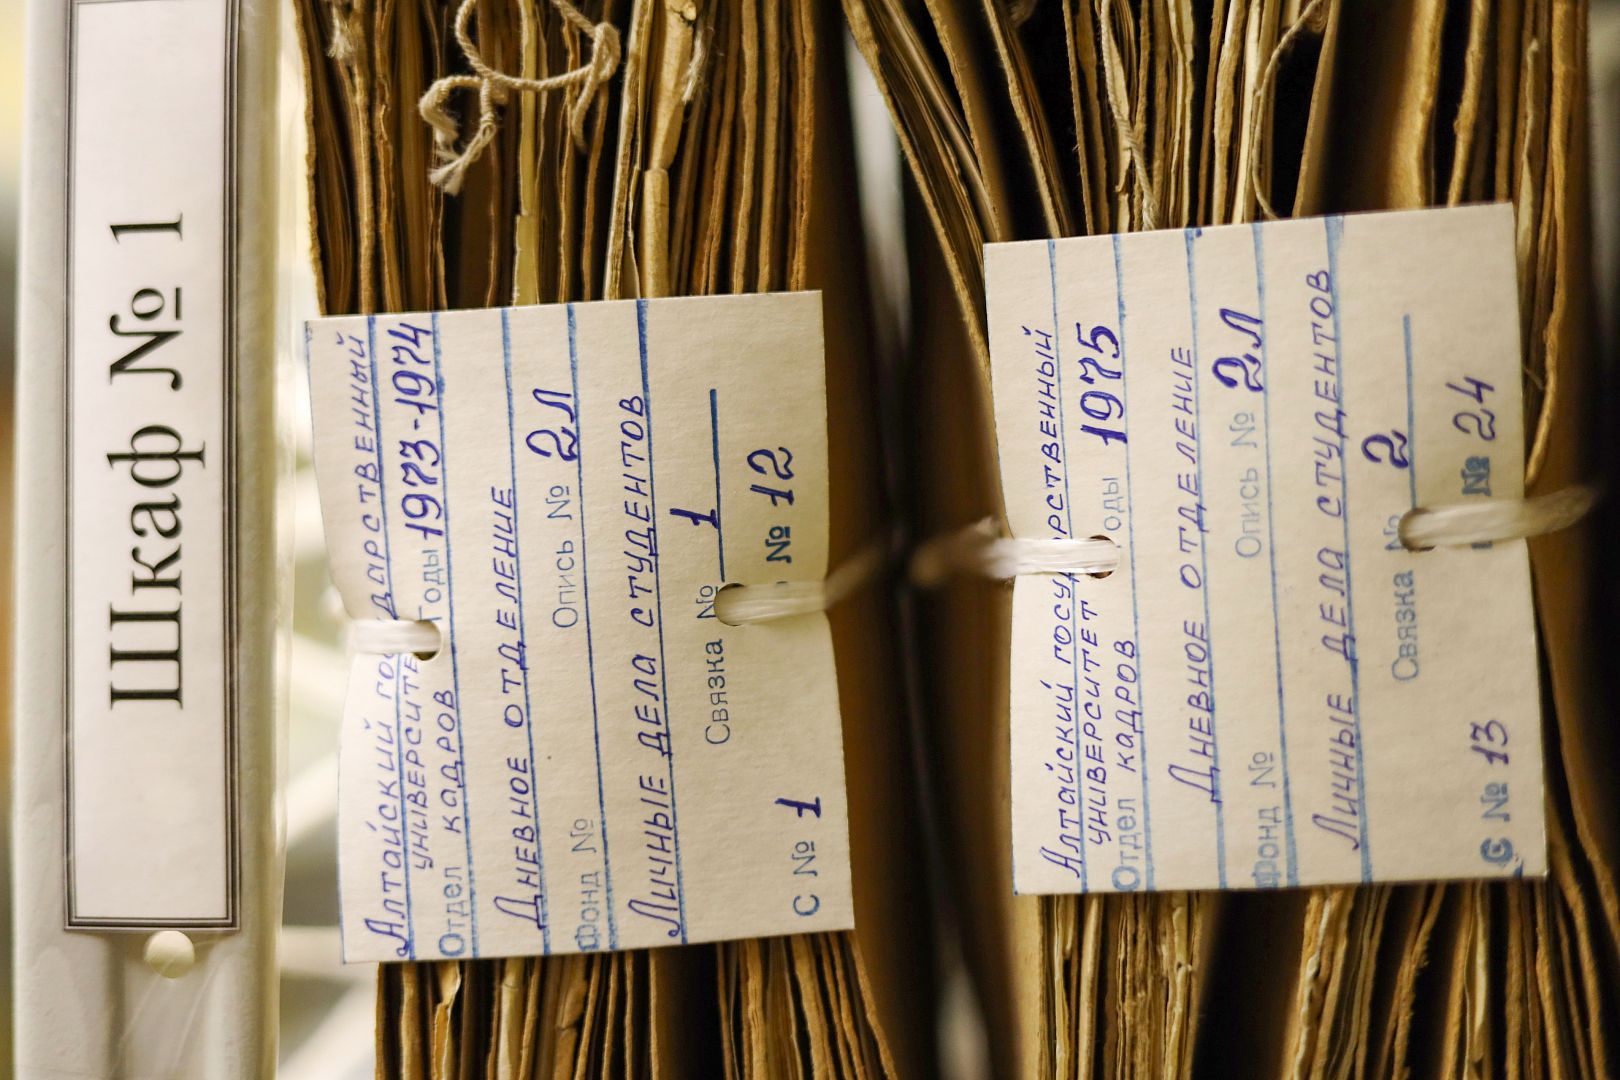 Шкаф № 1
Алтайский государственный
университет Годы 1973-1974
Отдел кадров
Дневное отделение
Фонд № Опись № 2л
Личные дела студентов
Связка № 1
С № 1 № 12
Алтайский государственный
университет Годы 1975
Отдел кадров
Дневное отделение
Фонд № Опись № 2л
Личные дела студентов
Связка № 2
С № 13 № 24